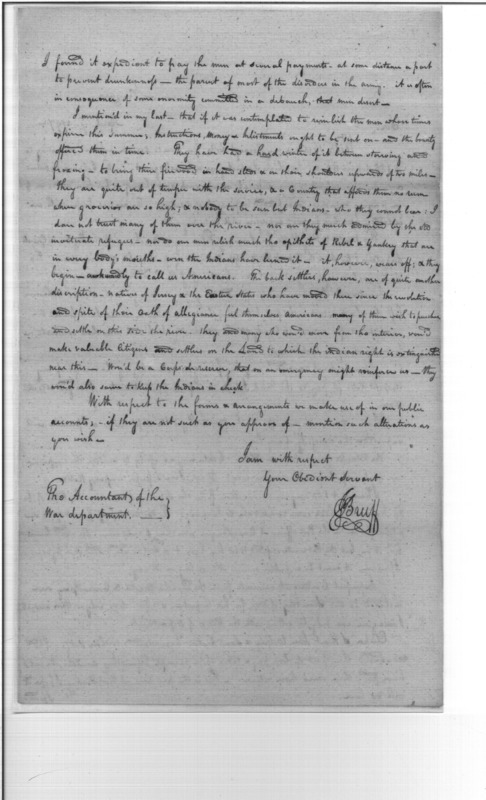 I found it expedient to pay the men at several payments - at some distance apart
to prevent drunkenness - the parent of most of the disorders in the army. it is often
in consequence of some enormity committed in a debauch, that men desert -
I mentioned in my last - that if it was contemplated to reinlist the men whose times
expire this Summer, Instructions, money & inlistments ought to be sent on - and the bounty
offered them in time. They have had a hard winter of it between starving and
freezing - to bring their firewood in hand sleds & on their shoulders upwards of two miles -
they are quite out of temper with the service, & a Country that affords them no rum
when groceries are so high; & nobody to be seen but Indians. who they would hear: I
dare not trust many of them over the river - nor are they much admired by the old
inveterate refugees - nor do our men relish much the epithets of Rebel & Yankey that are
in every body's mouths - even the Indians have learned it - it, however, wears off; & they
begin to call us Americans. The back settlers, however, are of quite another
discription - natives of Jersey & the Eastern States who have moved there since the revolution
and spite of their Oath of allegiance feel themselves Americans. many of them wish to purchase
and settle on this side the river. they and many who would move from the interior, would
make valuable Citizens and settlers on the land to which the indian right is extinguished
near this - Wou'd be a Corps de reserve, that on an emergency might reinforce us - they
wou'd also serve to keep the Indians in check
With respect to the forms & arrangements we make use of in our public
accounts, - if they are not such as you approve of - mention such alterations as
you wish -
I am with respect
Your Obedient Servant
The Accountant of the
War department.
JBruff